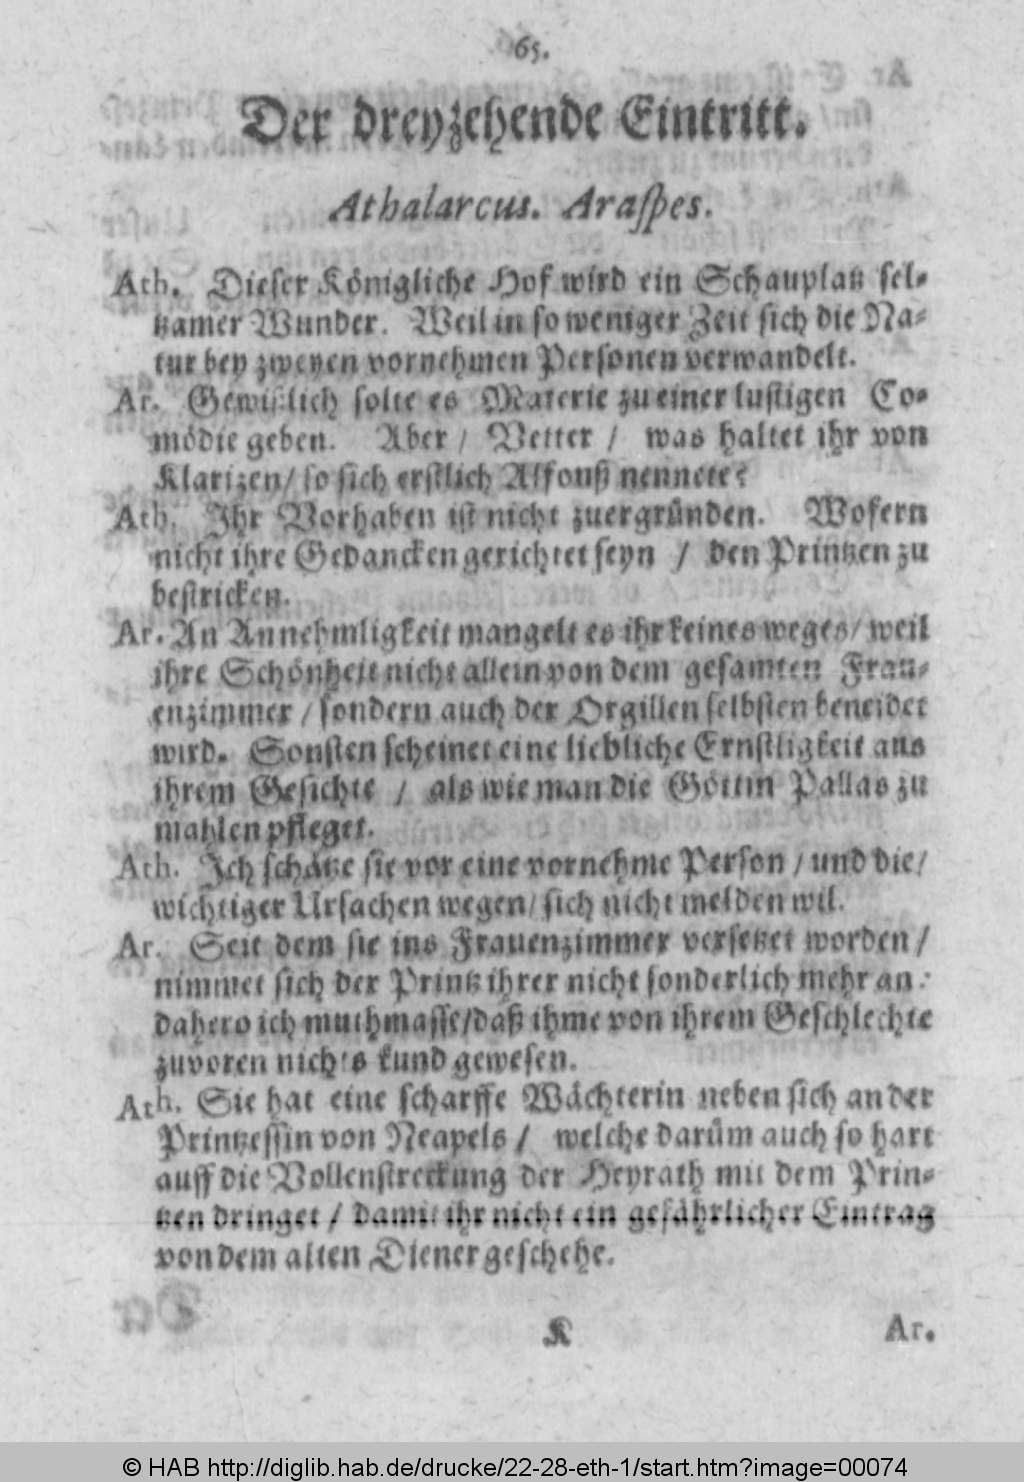 65.
Der dreyzehende Eintritt.
Athalarcus. Araspes.
Ath. Dieser Königliche Hof wird ein Schauplatz sel-
tzamer Wunder. Weil in so weniger Zeit sich die Na-
tur bey zweyen vornehmen Personen verwandelt.
Ar. Gewißlich solte es Materie zu einer lustigen Co-
mödie geben. Aber / Vetter / was haltet ihr von
Klarizen / so sich erstlich Alfonß nennete?
Ath. Ihr Vorhaben ist nicht zuergründen. Wofern
nicht ihre Gedancken gerichtet seyn / den Printzen zu
bestricken.
Ar. An Annehmligkeit mangelt es ihr keines weges / weil
ihre Schönheit nicht allein von dem gesamten Frau-
enzimmer / sondern auch der Orgillen selbsten beneidet
wird. Sonsten scheinet eine liebliche Ernstligkeit aus
ihrem Gesichte / als wie man die Göttin Pallas zu
mahlen pfleget.
Ath. Ich schätze sie vor eine vornehme Person / und die /
wichtiger Ursachen wegen / sich nicht melden wil.
Ar. Seit dem sie ins Frauenzimmer versetzet worden /
nimmet sich der Printz ihrer nicht sonderlich mehr an:
dahero ich muthmasse / daß ihme von ihrem Geschlechte
zuvoren nichts kund gewesen.
Ath. Sie hat eine scharffe Wächterin neben sich an der
Printzessin von Neapels / welche darüm auch so hart
auff die Vollenstreckung der Heyrath mit dem Prin-
tzen dringet / damit ihr nicht ein gefährlicher Eintrag
von dem alten Diener geschehe.
K Ar.
© HAB http://diglib.hab.de/drucke/22-28-eth-1/start.htm?image=00074